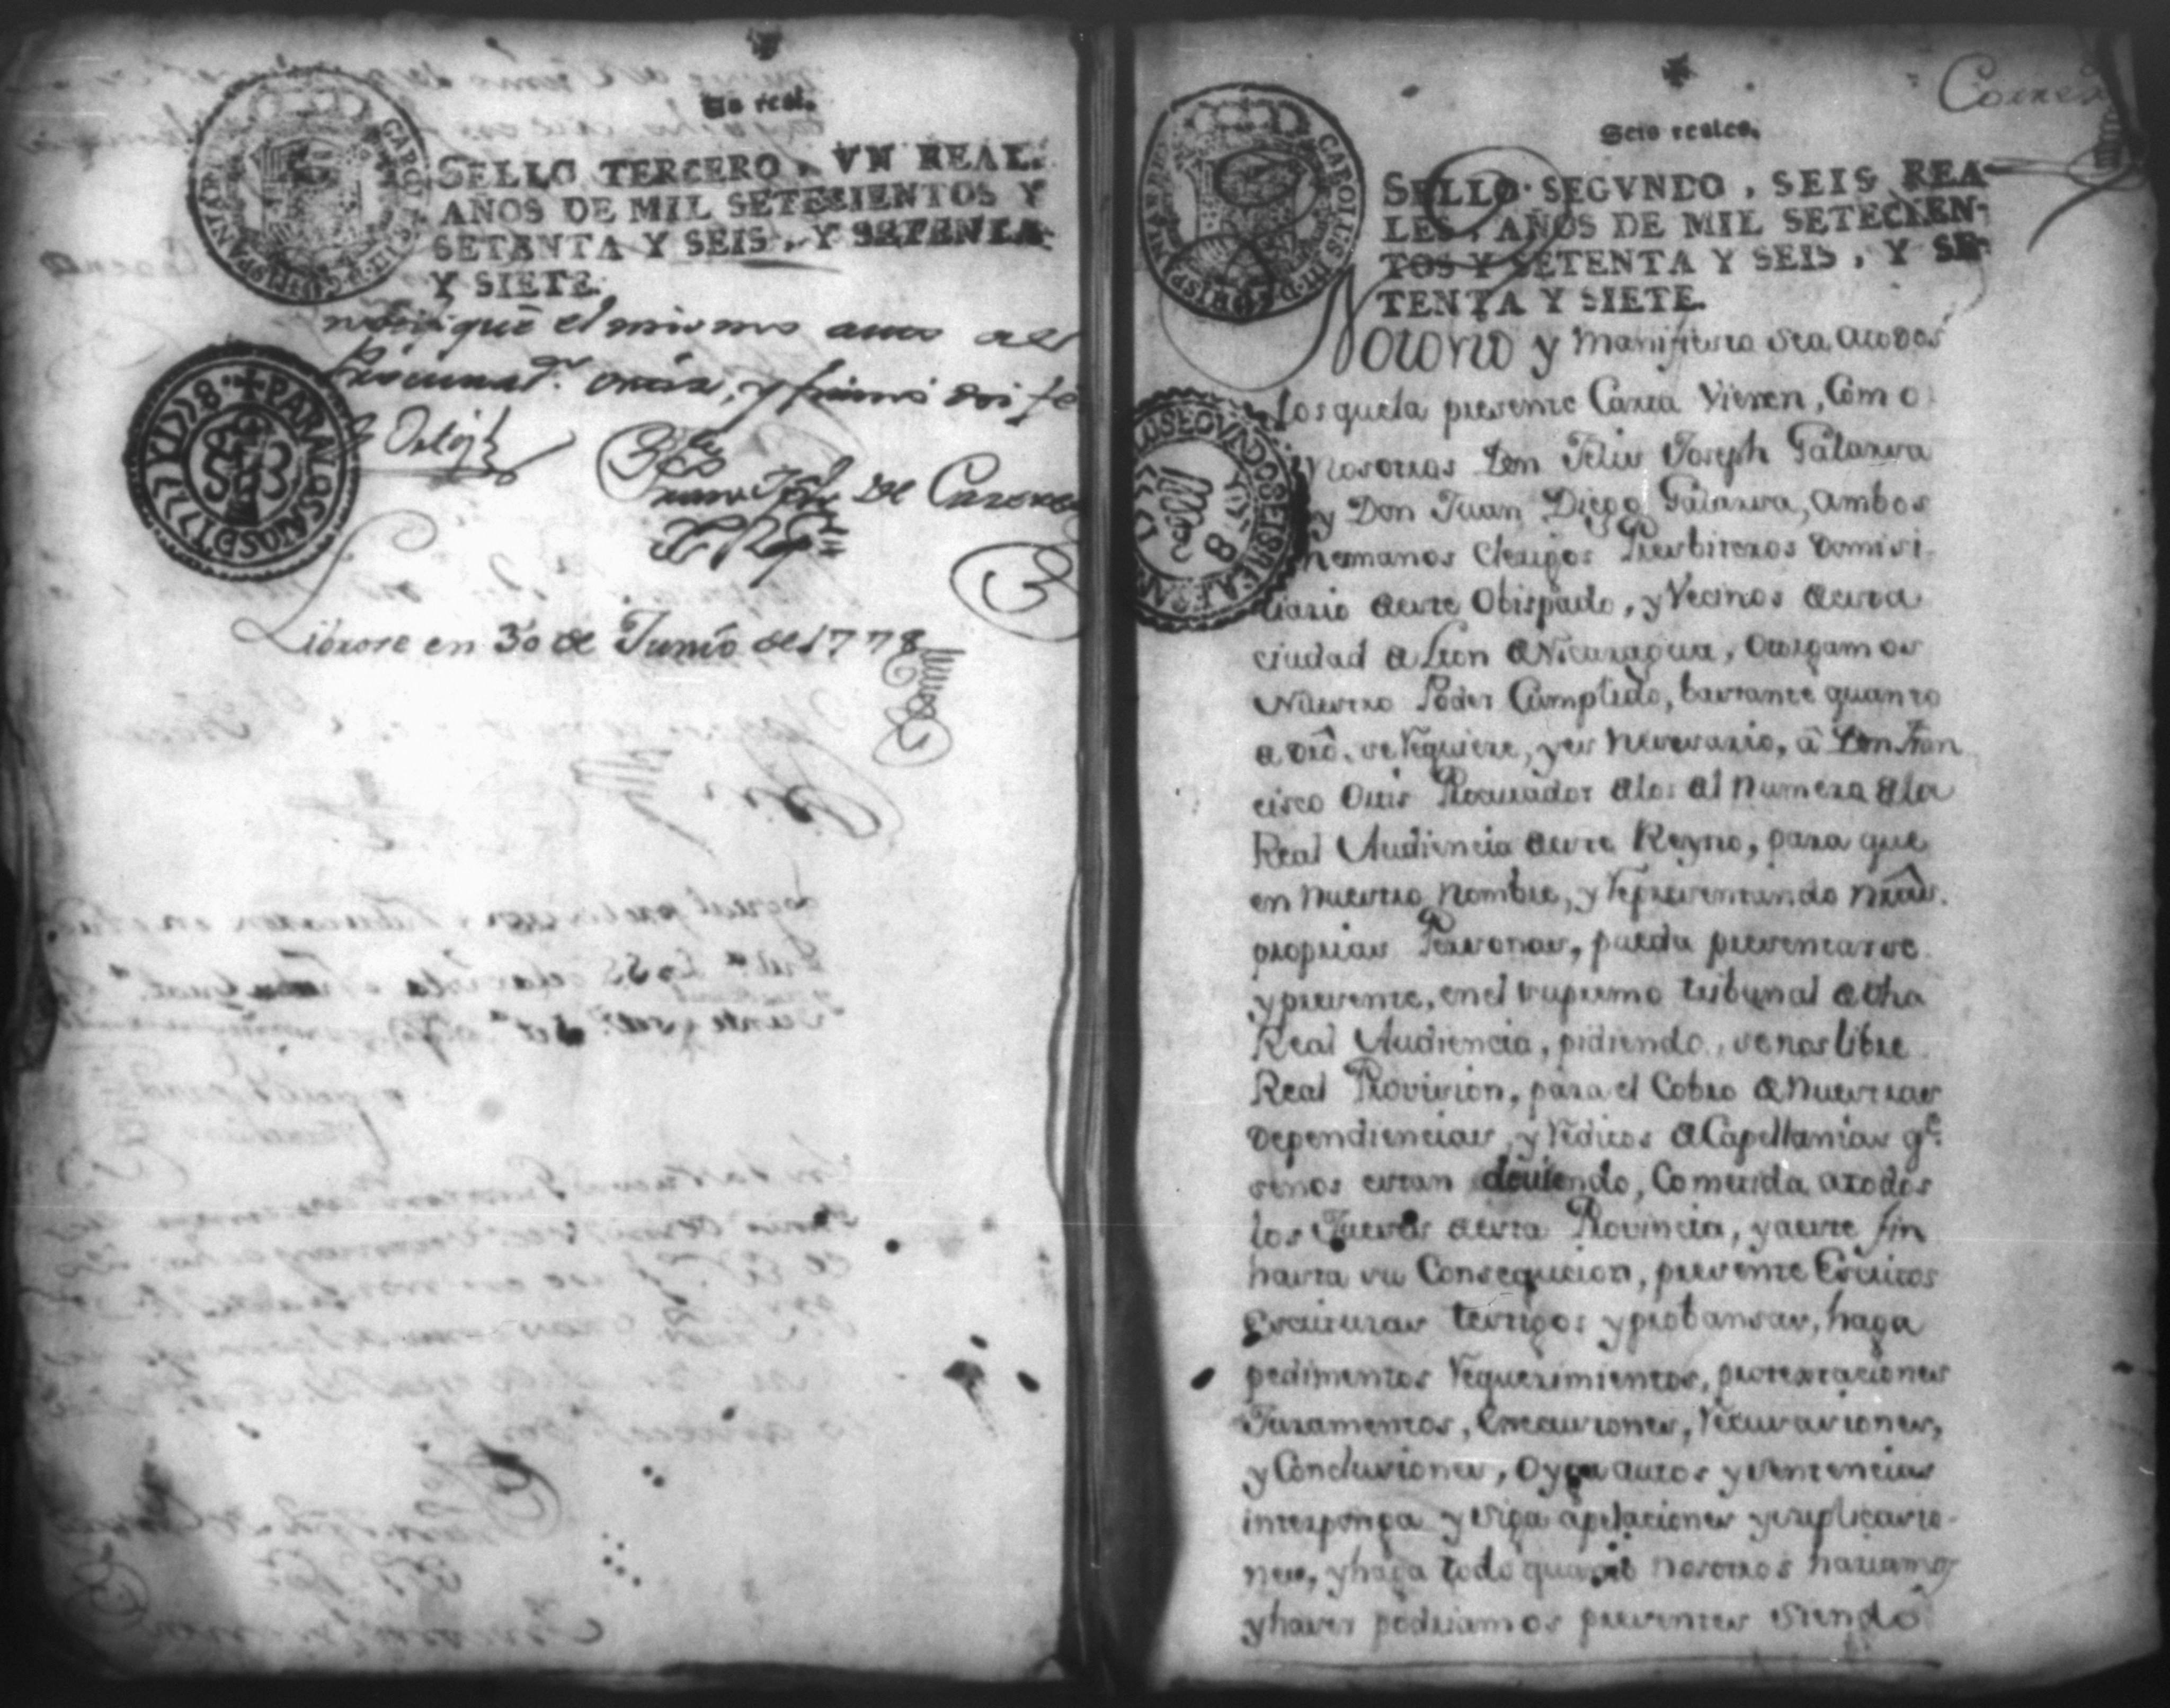 Un real.
SELLO TERCERO, VN REAL.
AÑOS DE MIL SETECIENTOS Y
SETENTA Y SEIS, Y SETENTA
Y SIETE.
CAROLUS III D G HISPANIAR
notifique el mismo auto al
Procurad.or Ortiz, y firmo doi fe
Ortiz
de
PARA LOS AÑOS DE 1777 Y 1778
Librose en 30 de Junio de 1778
Correg
Seis reales.
SELLO SEGVNDO, SEIS REA-
LES, AÑOS DE MIL SETECIEN-
TOS Y SETENTA Y SEIS, Y SE-
TENTA Y SIETE.
CAROLUS III D G HISPANIAR
Notorio y manifiesto sea atodos
los quela presente Carta Vieren, Como
Nosotros Don Felis Joseph Galarza
y Don Juan Diego Galarza, ambos
hermanos clerigos Presbiteros Domisi
liario deeste Obispado, y Vecinos deesta
ciudad de Leon de Nicaragua, otorgamos
Nuestro Poder Cumplido, bastante quanto
a dro. se requiere, yes nesesario, á Don Fran
cisco Ortis Procurador delos del Numero dela
Real Audiencia deeste Reyno, para que
en nuestro Nombre, y representando nras.
proprias Personas, pueda presentarse
y presente, enel supremo tribunal de dha
Real Audiencia, pidiendo, senos libre
Real Provision, para el Cobro de nuestras
Dependiencias, y reditos de Capellanias q.e
senos estan deviendo, Cometida atodos
los Jueses deesta Provincia, y aeste fin
hasta su Consequcion, presente Escritos
escrituras testigos y probansas, haga
pedimentos requerimientos, protextaciones
Juramentos, execusiones, recusasiones,
y Conclusiones, Oyga autos y sentencias
interponga y siga apelaciones y suplicasio-
nes, y haga todo quanto nosotros hariamos
y haser podriamos presentes siendo